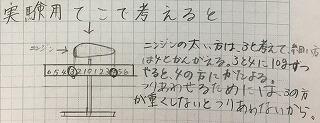 実験用てこで考えると
ニンジン
ニンジンの太い方は、3と考えて、細い方
は4とかんがえる。3と4に10gずつ
やると、4の方にかたよる。
つりあわせるためには、3の方
が重くしないとつりあわないから。
6 5 4 3 2 1 0 1 2 3 4 5 6